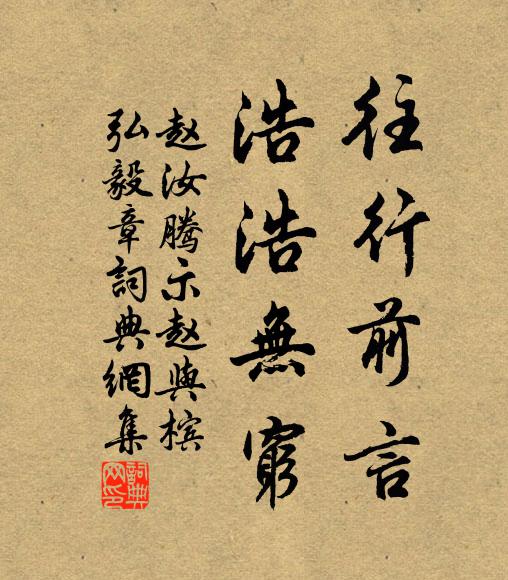 往行前言
浩浩無窮
赵汝腾示赵與槟
弘毅章詞典網集
詞典
网印